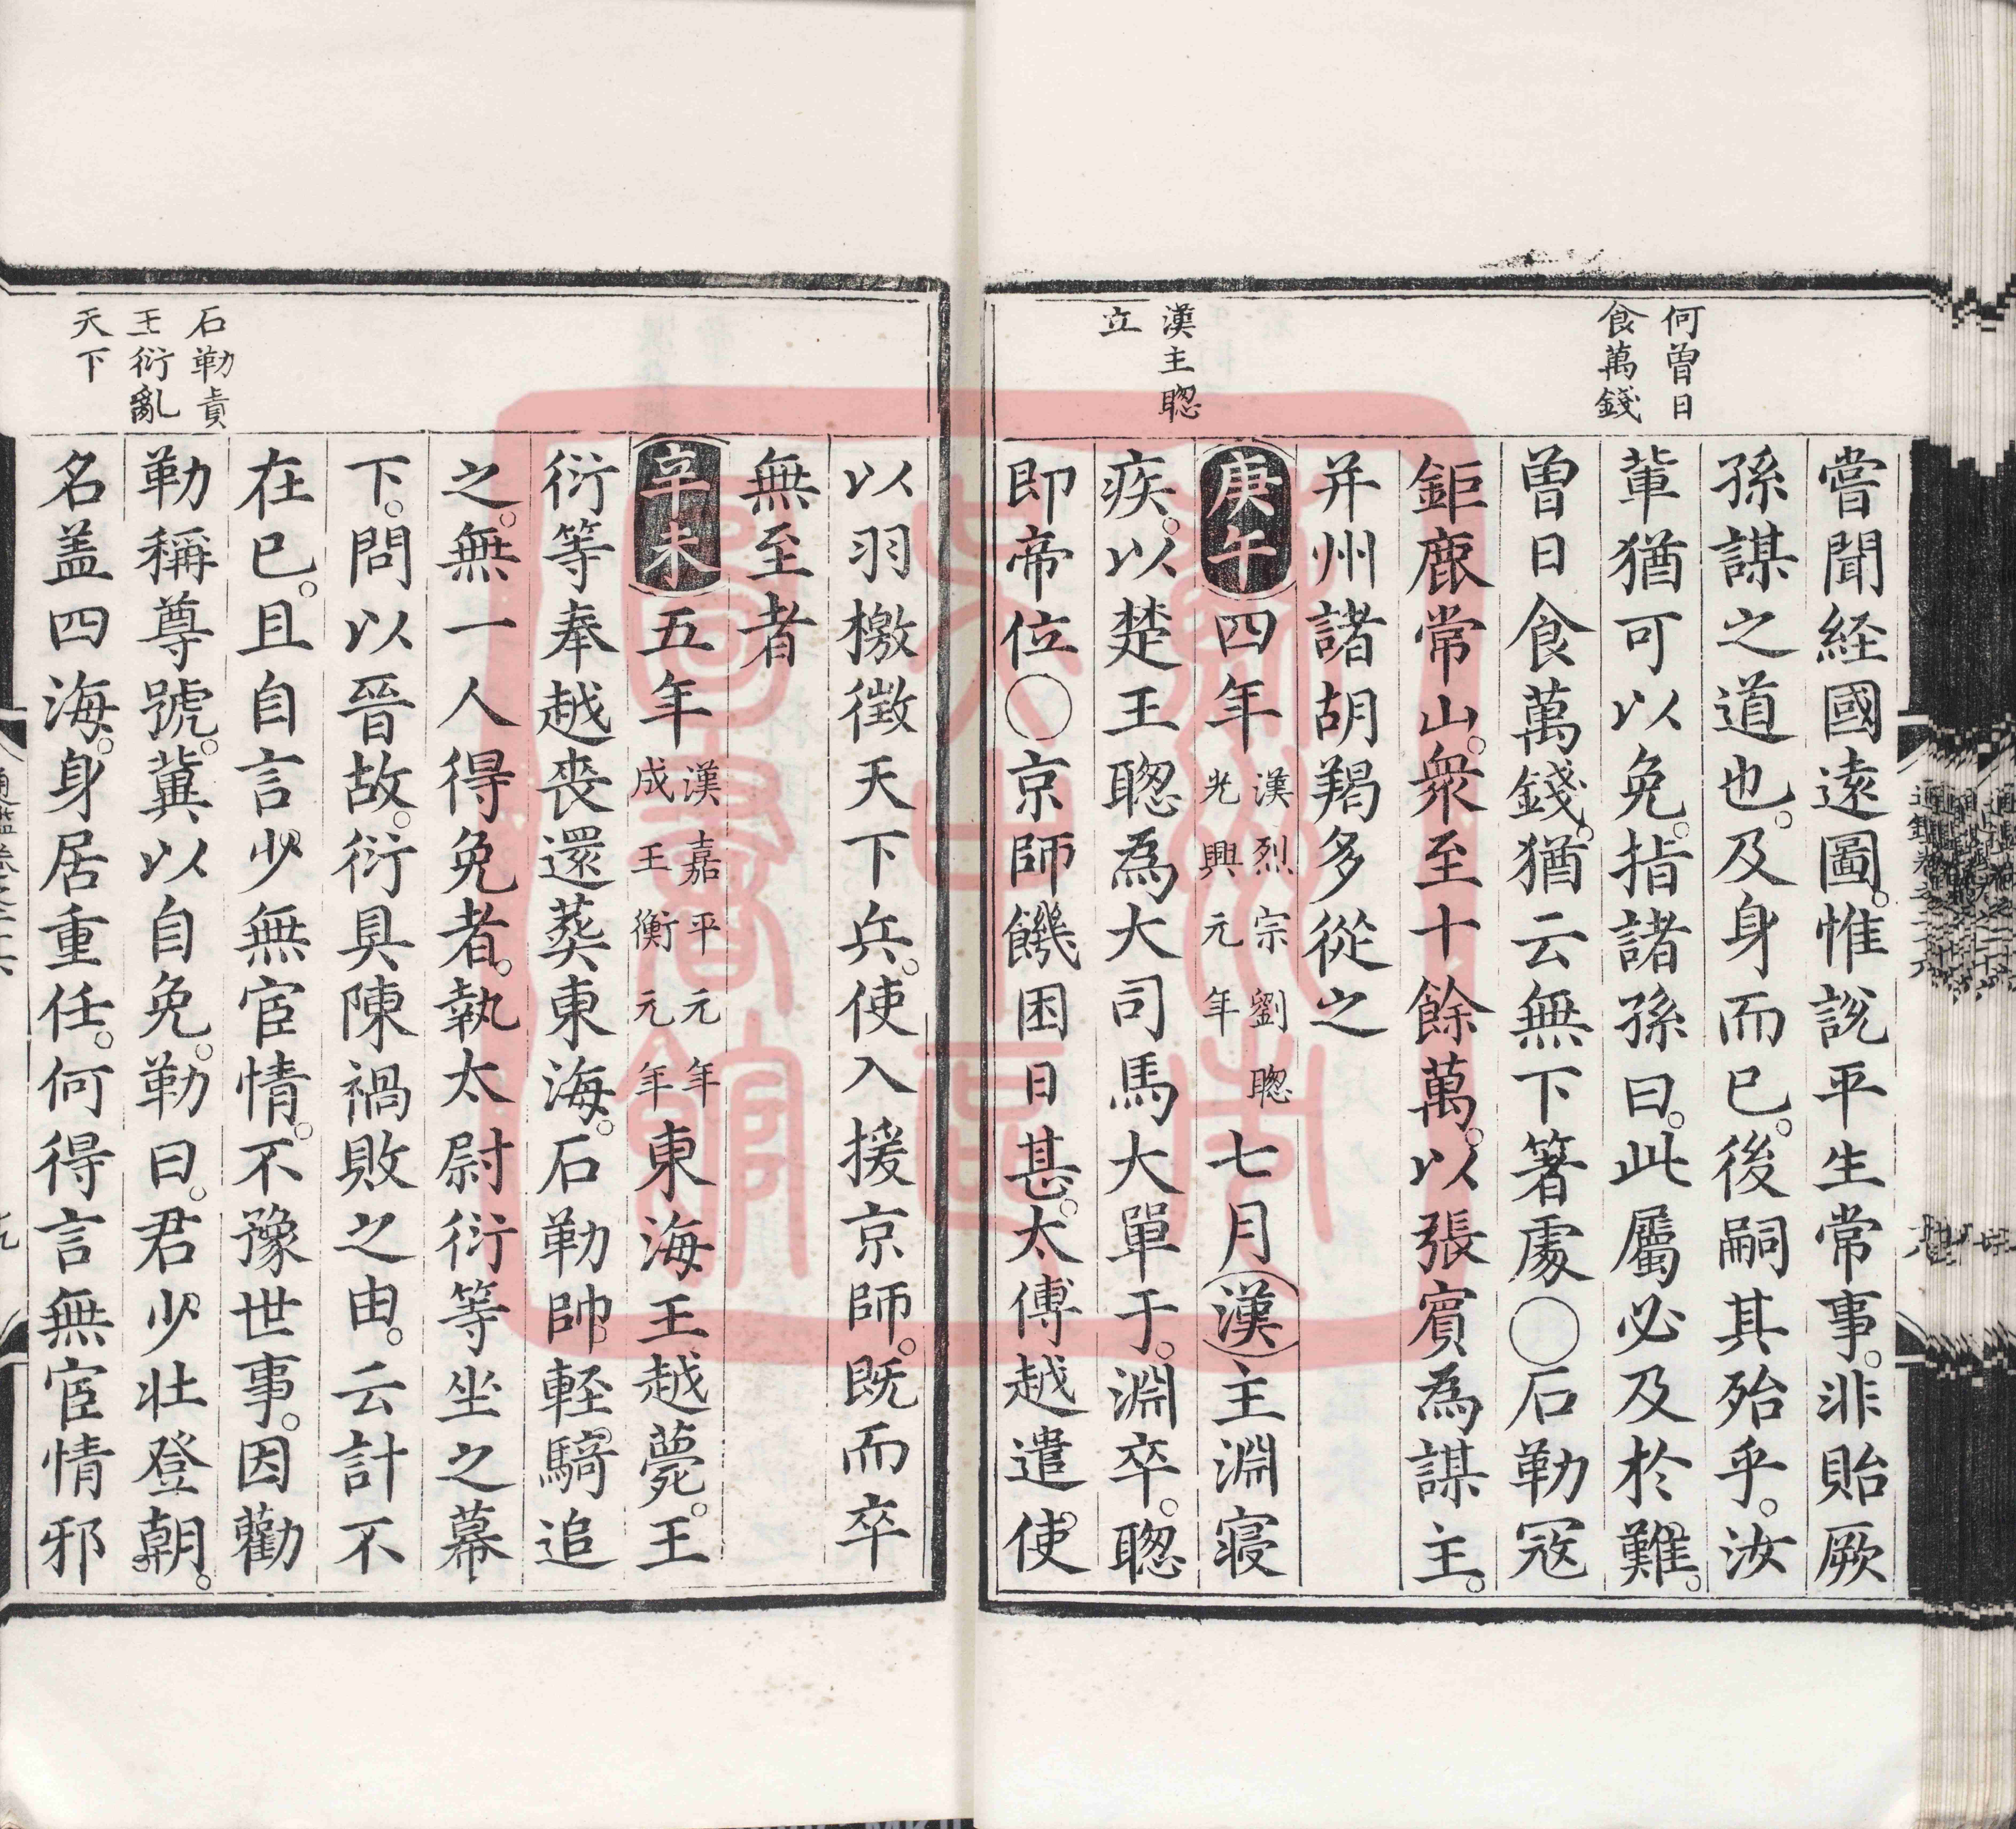 何曾日
食萬錢
漢主聰
立
嘗聞経國遠圖。惟説平生常事。非貽厥
孫謀之道也。及身而已。後嗣其殆乎。汝
軰猶可以免。指諸孫曰。此屬必及於難。
曾日食萬錢。猶云無下箸處○石勒冦
鉅鹿常山。衆至十餘萬。以張賓為謀主。
并州諸胡羯多從之
庚午四年漢烈宗劉聰光興元年七月漢主淵寝
疾。以楚王聰為大司馬大單于。淵卒。聰
即帝位○京師饑困日甚。太傅越遣使
石勒責
王衍亂
天下
以羽檄徴天下兵。使入援京師。既而卒
無至者
辛未五年漢嘉平元年成王衡元年東海王越薨。王
衍等奉越喪還葬東海。石勒帥軽騎追
之。無一人得免者。執太尉衍等坐之幕
下。問以晉故。衍具陳禍敗之由。云計不
在已。且自言少無宦情。不豫世事。因勸
勒稱尊號。冀以自免。勒曰。君少壮登朝。
名盖四海。身居重任。何得言無宦情邪